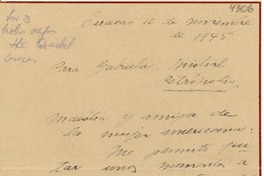 4306
Caracas 16 de Noviembre
de 1945.
Para Gabriela Mistral
Petrópolis.
Maestra y amiga de
la mujer americana:
Me permito qui
tar unos momentos a